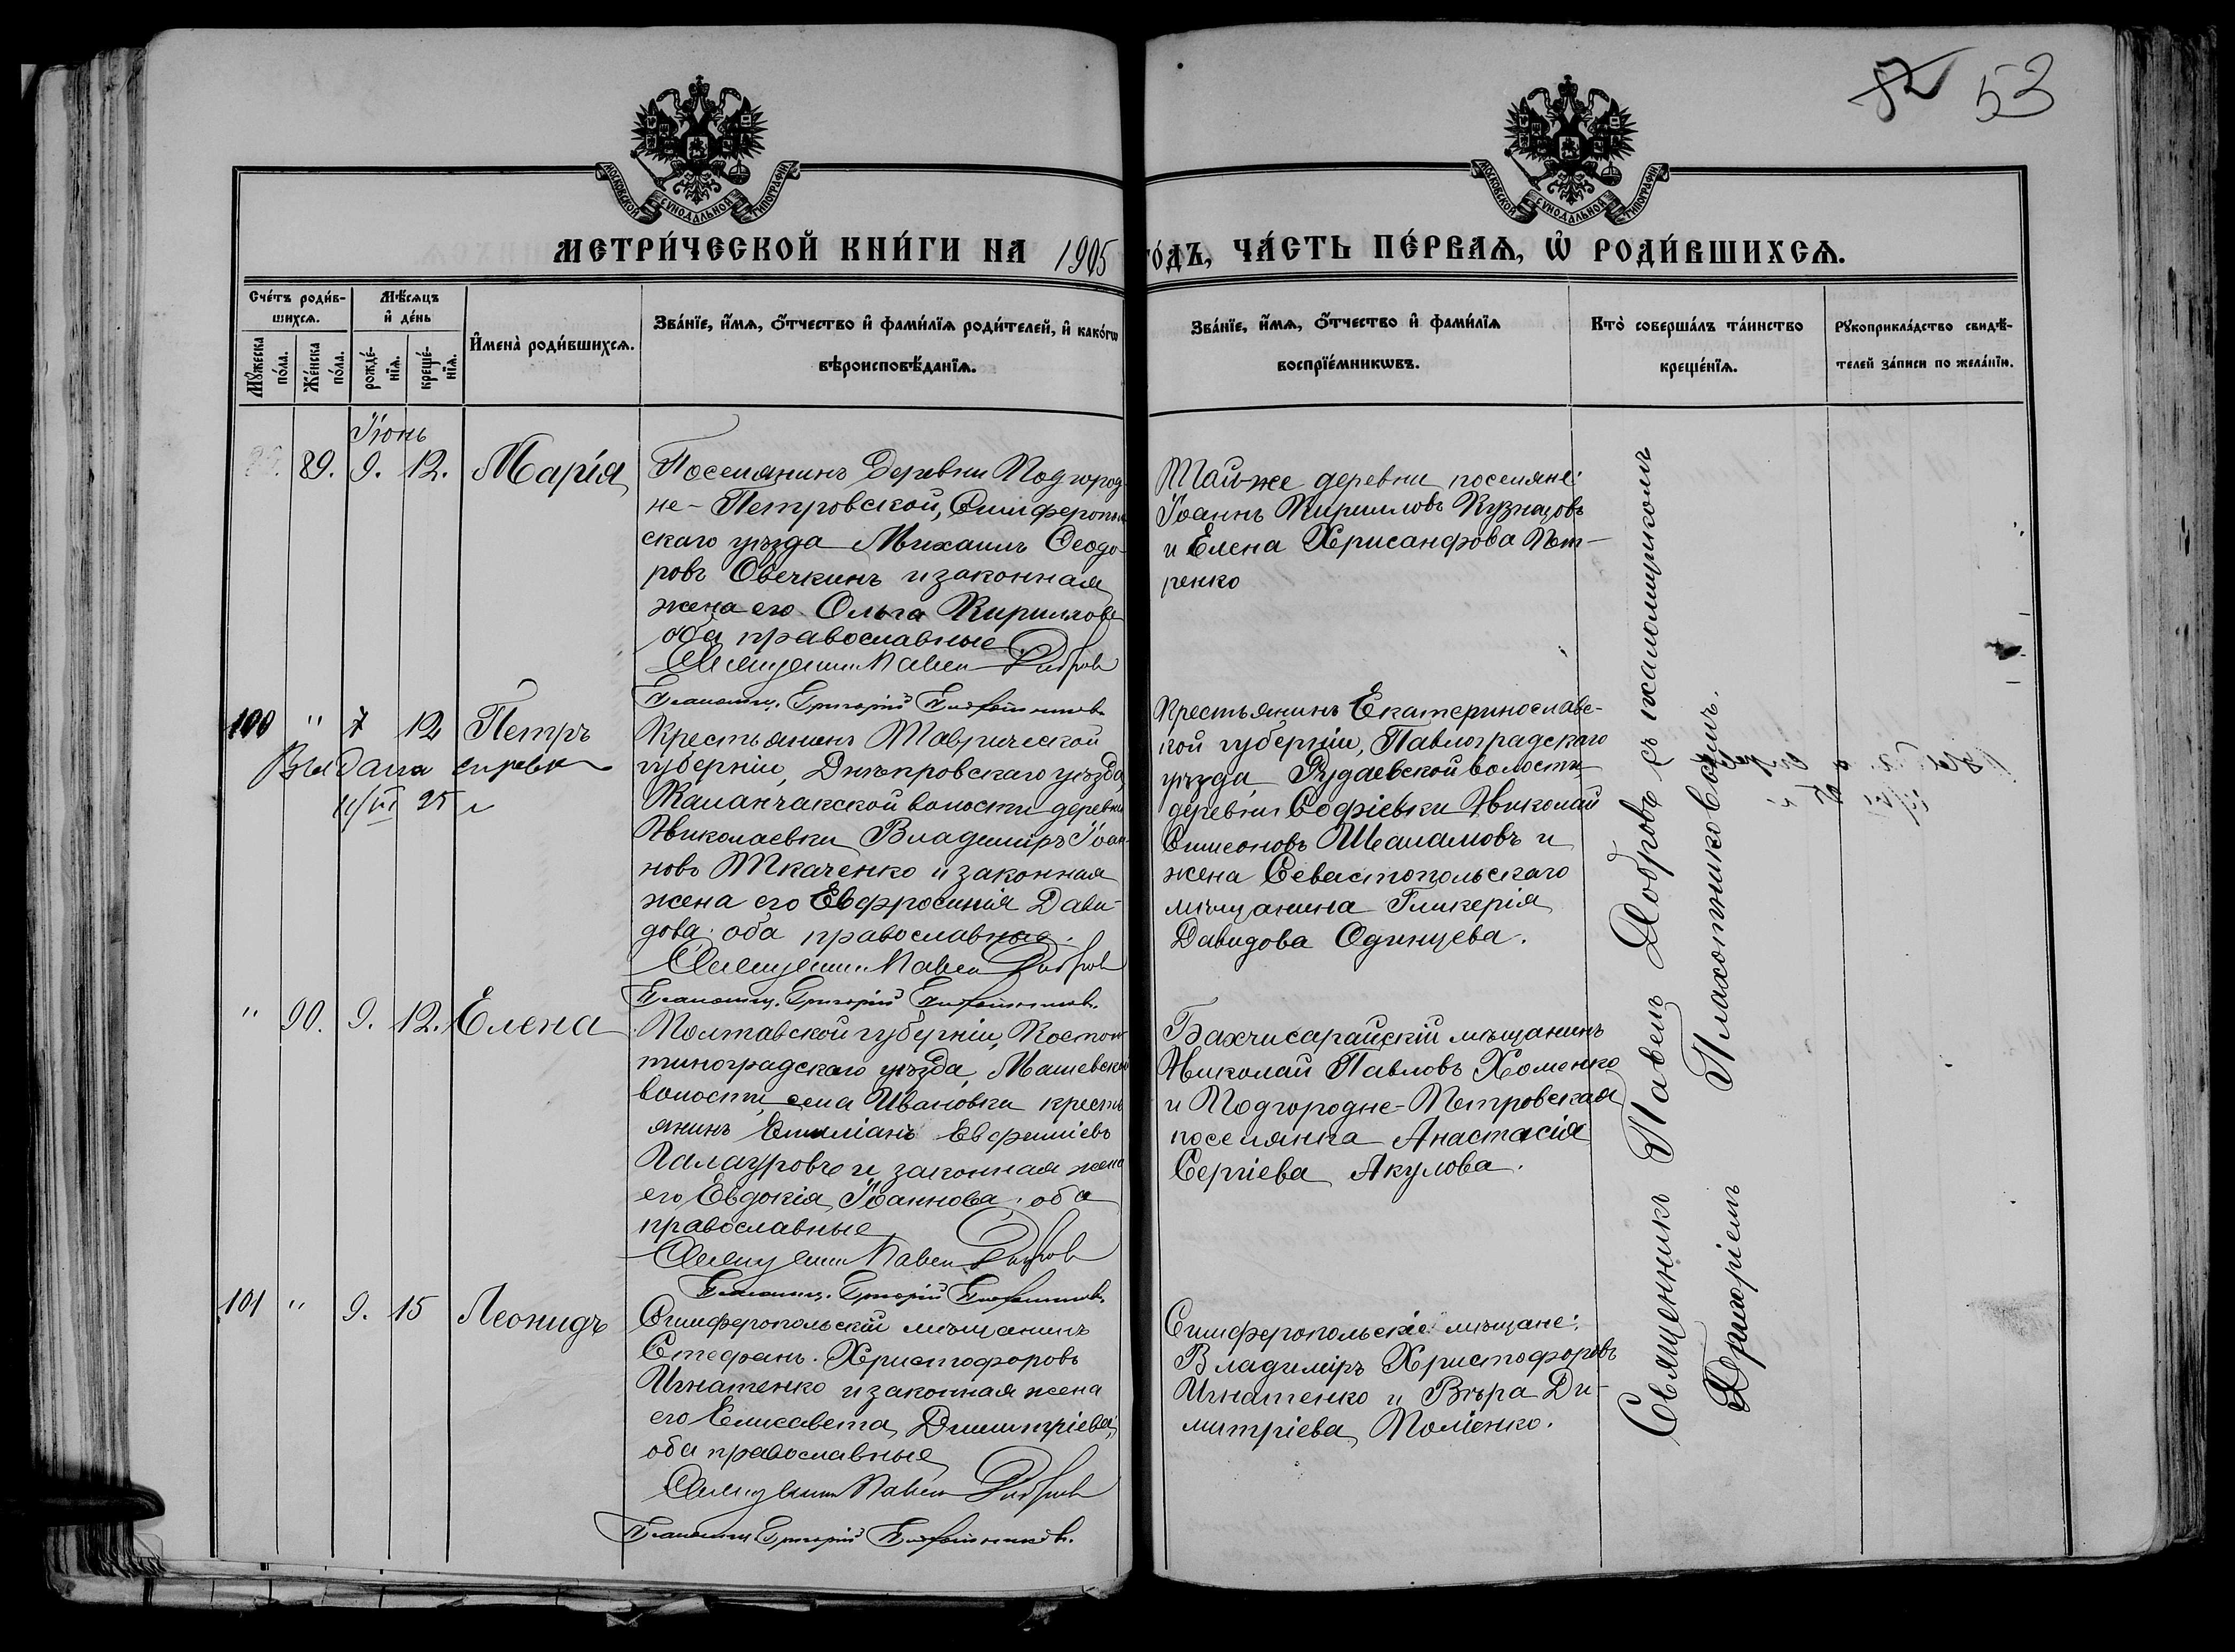 82 53
МОСКОВСКОЙ СѴНОДАЛЬНОЙ ТИПОГРАФІИ
МОСКОВСКОЙ СѴНОДАЛЬНОЙ ТИПОГРАФІИ
МЕТРИ́ЧЕСКОЙ КНИ́ГИ НА 1905 ГО́ДЪ, ЧА́СТЬ ПЕ́РВАѦ, Ѡ҆ РОДИ́ВШИХСѦ.
Сче́тъ роди́в-
шихсѧ.
Мꙋ́жеска по́ла.
Же́нска по́ла.
Мѣ́сѧцъ и҆ де́нь
рожде́-
нїѧ.
креще́-
нїѧ.
И҆мена̀ роди́вшихсѧ.
Зва́нїе, и҆́мѧ, ѻ҆́тчество и҆ фами́лїѧ роди́телей, и҆ како́гѡ
вѣроисповѣ́данїѧ.
Зва́нїе, и҆́мѧ, ѻ҆́тчество и҆ фами́лїѧ
воспрїе́мникѡвъ.
Кто̀ соверша́лъ та́инство
креще́нїѧ.
Рꙋкоприкла́дство свидѣ́-
телей за́писи по жела́нїю.
Іюнь
89. 9. 12. Марія
Поселянинъ деревни Подгород-
не-Петровской, Симферополь
скаго уѣзда Михаилъ Ѳеодо-
ровъ Овечкинъ и законная
жена его Ольга Кириллова
оба православные
Священникъ Павелъ Добровъ
Псаломщ. Григорій Плахотниковъ
Той-же деревни поселяне:
Іоаннъ Кирилловъ Кузнецовъ
и Елена Хрисанфова Пет-
ренко
100 " 7 12 Петръ
Выдана справка
11/VI 25 г
Крестьянинъ Таврической
губерніи, Днѣпровскаго уѣзда,
Каланчакской волости деревни
Николаевки Владиміръ Іоан-
новъ Ткаченко и законная
жена его Евфросинія Дави-
дова. оба православные.
Священникъ Павелъ Добровъ
Псаломщ. Григорій Плахотниковъ.
Крестьянинъ Екатеринославс-
кой губерніи, Павлоградскаго
уѣзда, Рудаевской волости,
деревни Софіевки Николай
Симеоновъ Шаламовъ и
жена Севастопольскаго
мѣщанина Гликерія
Давидова Одинцева.
" 90. 9. 12. Елена
Полтавской губерніи, Костон-
тиноградскаго уѣзда, Машевской
волости, села Ивановки кресть
янинъ Емиліанъ Евфиміевъ
Палагровъ и законная жена
его Евдокія Іоаннова, оба
православные
Священникъ Павелъ Добровъ
Псаломщ. Григорій Плахотниковъ.
Бахчисарайскій мѣщанинъ
Николай Павловъ Хоменко
и Подгородне-Петровская
поселянка Анастасія
Сергіева Акулова.
101 " 9. 15 Леонидъ
Симферопольскій мѣщанинъ
Стефанъ Христофоровъ
Игнатенко и законная жена
его Елисавета Димитріева,
оба православные
Священникъ Павелъ Добровъ
Псаломщ. Григорій Плахотниковъ.
Симферопольскіе мѣщане:
Владиміръ Христофоровъ
Игнатенко и Вѣра Ди-
митріева
Священникъ Павелъ Добровъ съ псаломщикомъ
Григоріемъ Плахотниковымъ.